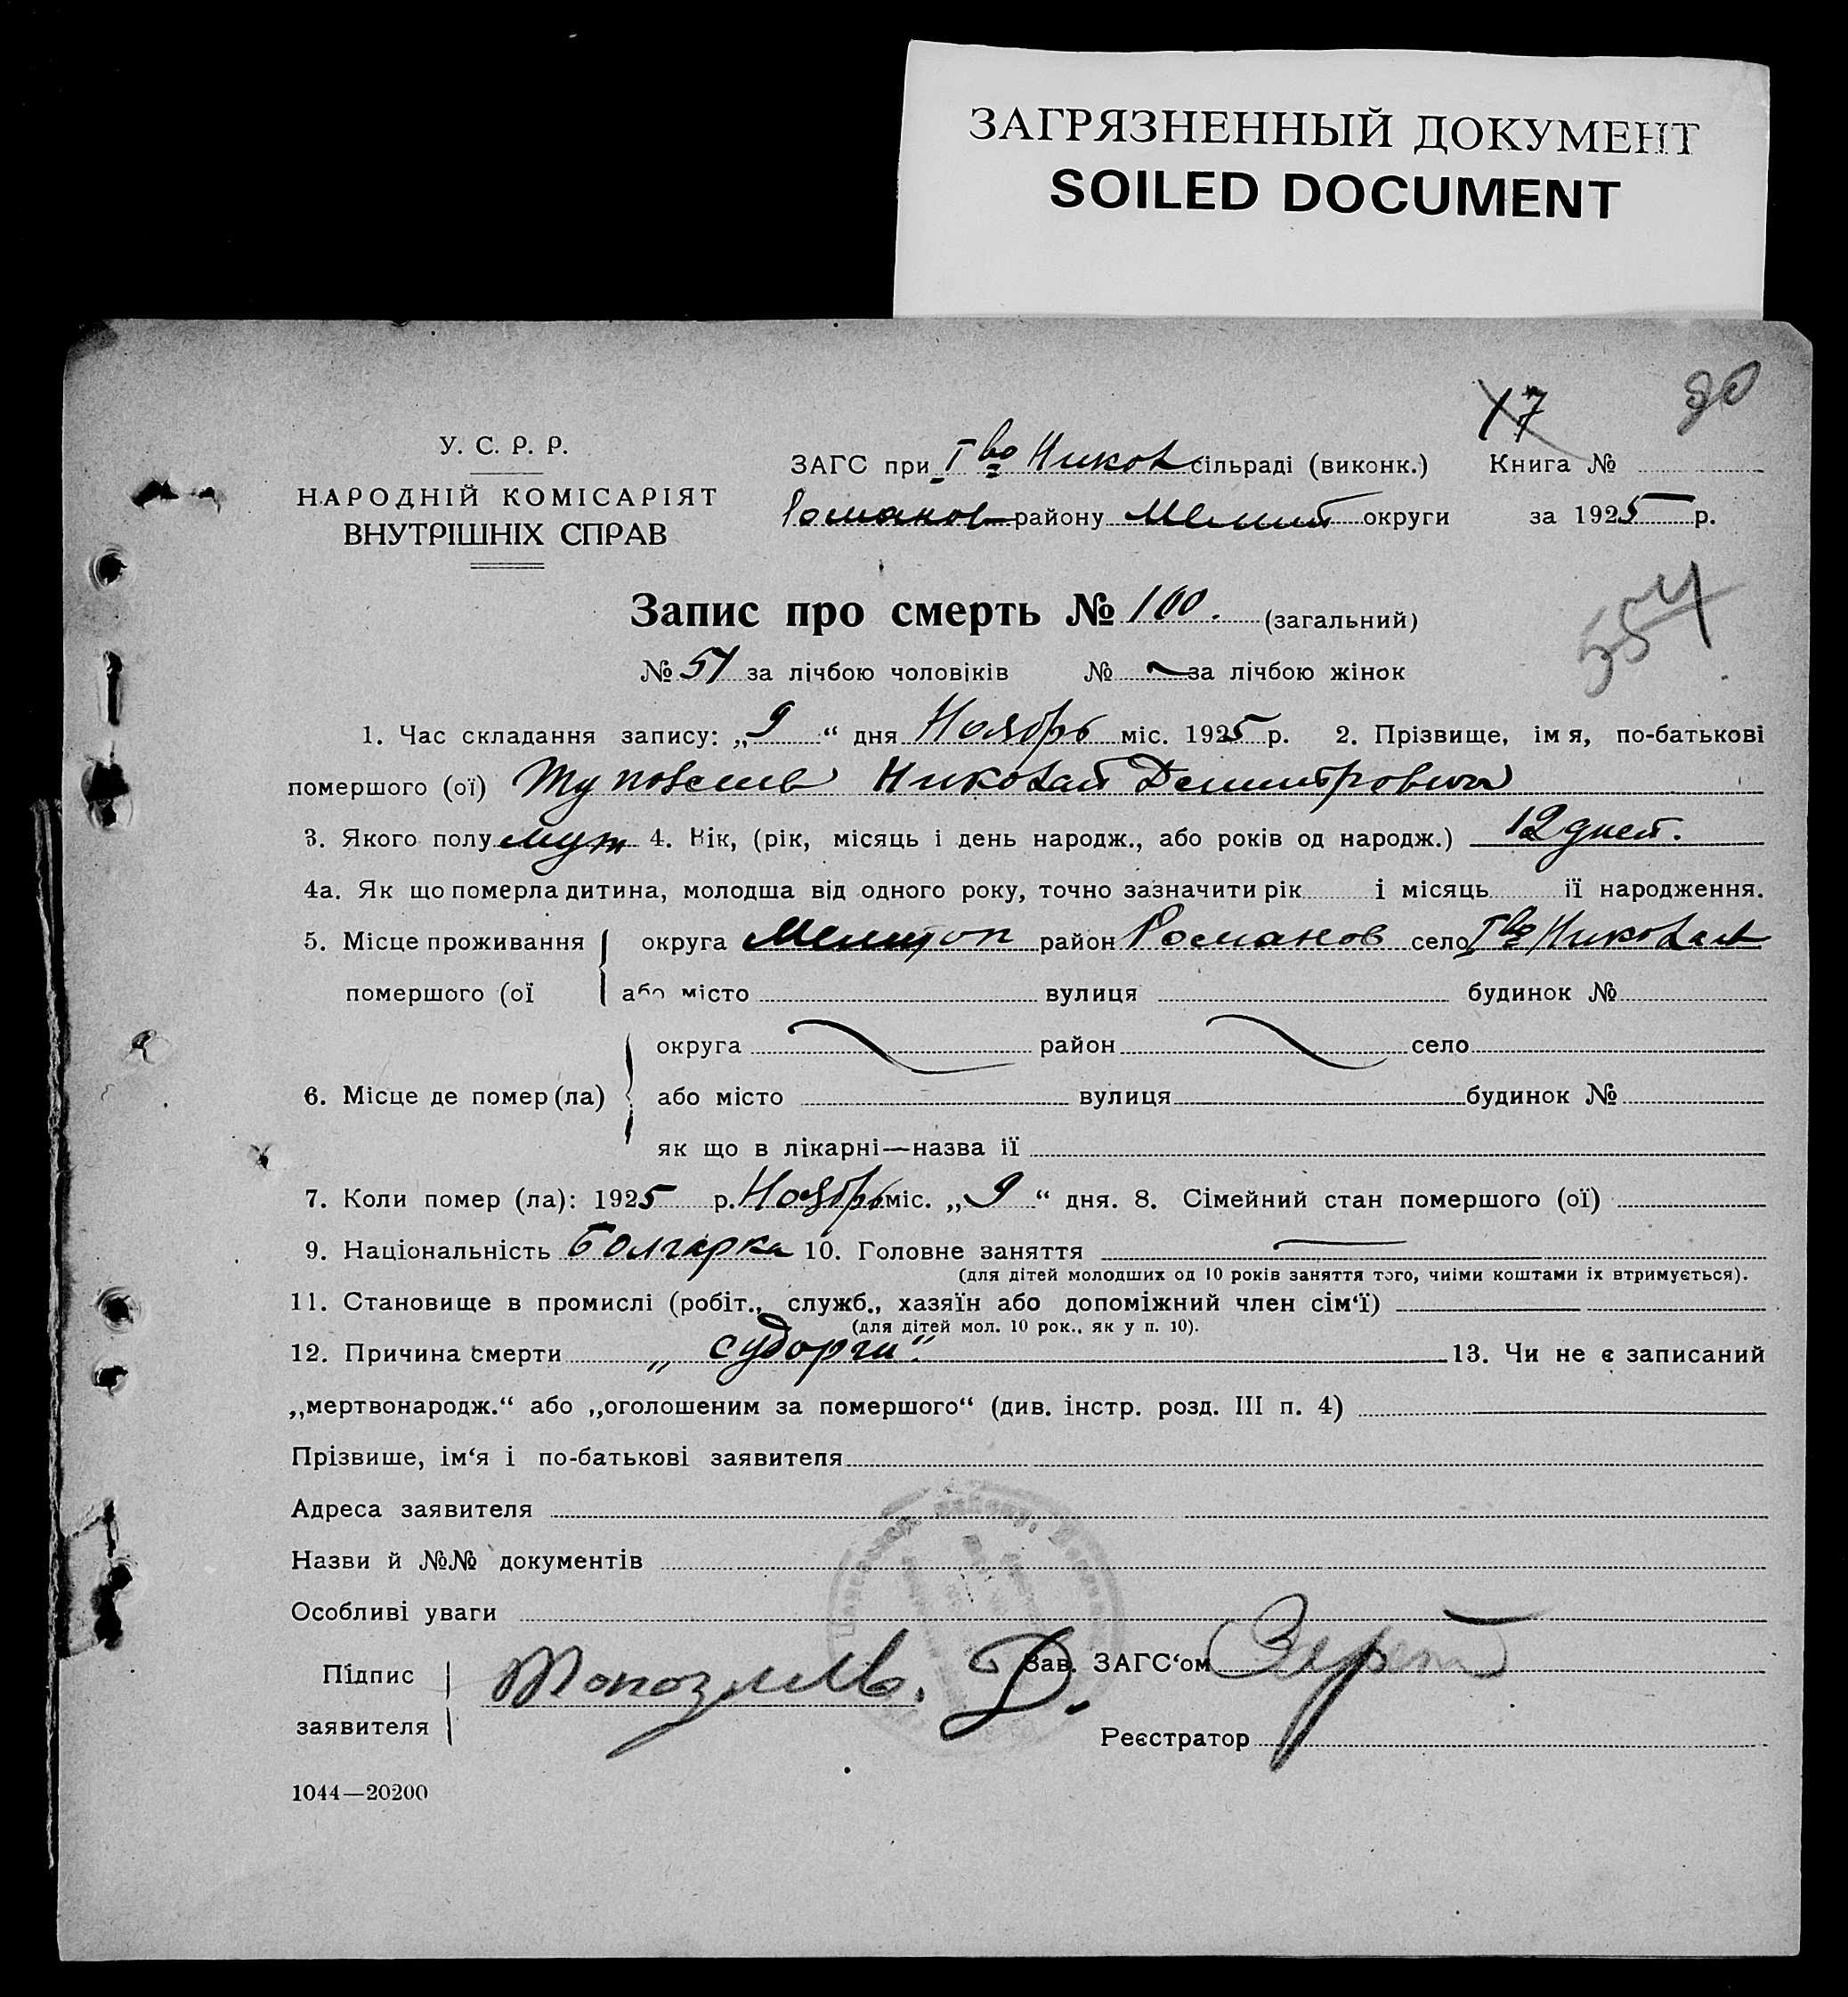 ЗАГРЯЗНЕННЫЙ ДОКУМЕНТ
SOILED DOCUMENT
17 90
У. С. Р. Р.
НАРОДНІЙ КОМІСАРІЯТ
ВНУТРІШНІХ СПРАВ
ЗАГС при Iво Никол сільраді (виконк.) Книга №
Романов району Мелит округи за 1925 р.
Запис про смерть № 100. (загальний)
554
№ 51 за лічбою чоловіків № за лічбою жінок
1. Час складання запису: „9“ дня Ноябрь міс. 1925 р. 2. Прізвище, імя, по-батькові
помершого (ої) Николай Демитрович
3. Якого полу муж 4. Вік, (рік, місяць і день народж., або років од народж.) 12 дней.
4а. Як що померла дитина, молодша від одного року, точно зазначити рік і місяць її народження.
5. Місце проживання округа Мелитоп район Романов село Iво Николаев
помершого (ої або місто вулиця будинок №
округа район село
6. Місце де помер (ла) або місто вулиця будинок №
як що в лікарні—назва її
7. Коли помер (ла): 1925 р. Ноябрь міс. „9“ дня. 8. Сімейний стан помершого (ої)
9. Національність Болгарка 10. Головне заняття —
(для дітей молодших од 10 років заняття того, чиїми коштами їх втримується).
11. Становище в промислі (робіт., служб., хазяїн або допоміжний член сім‘ї)
(для дітей мол. 10 рок., як у п. 10).
12. Причина смерти „судорги“. 13. Чи не є записаний
„мертвонародж.“ або „оголошеним за помершого“ (див. інстр. розд. III п. 4)
Прізвише, ім‘я і по-батькові заявителя
Адреса заявителя
Назви й №№ документів
Особливі уваги
Підпис Д. Зав. ЗАГС‘ом
заявителя Реєстратор
1044—20200